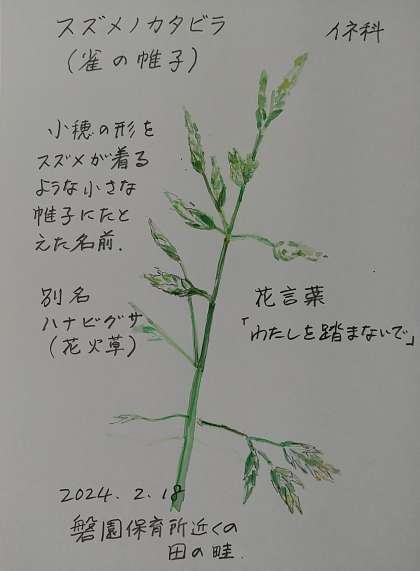 スズメノカタビラ
(雀の帷子)
イネ科
小穂の形を
スズメが着る
ような小さな
帷子にたと
えた名前.
別名
ハナビグサ
(花火草)
花言葉
「わたしを踏まないで」
2024. 2. 18
磐園保育所近くの
田の畦.